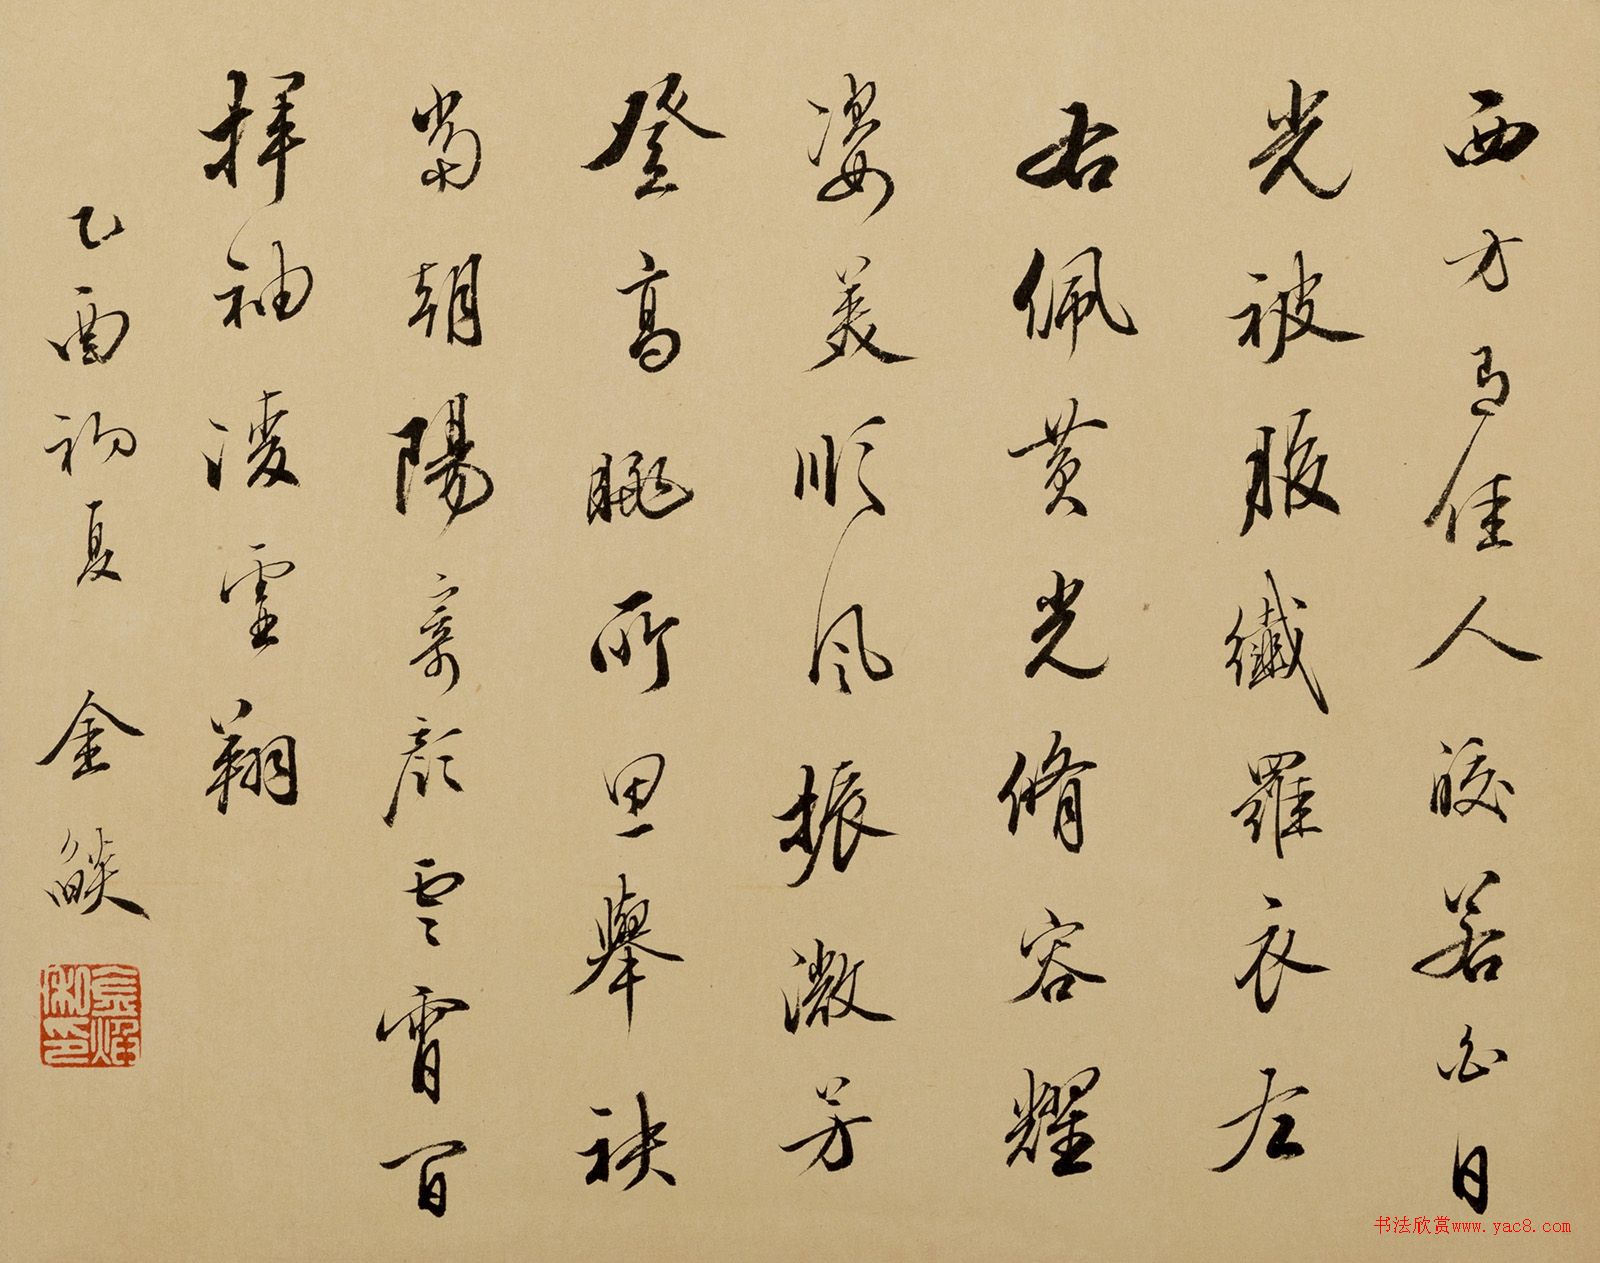 西方有佳人皎若白日
光被服纖羅衣左
右佩黄光脩容耀
姿美順風振微芳
登高眺所思舉袂
當朝陽寄顏雲霄間
揮袖淩虛翔
乙酉初夏 金燄
金焰私印
书法欣赏www.yac8.com